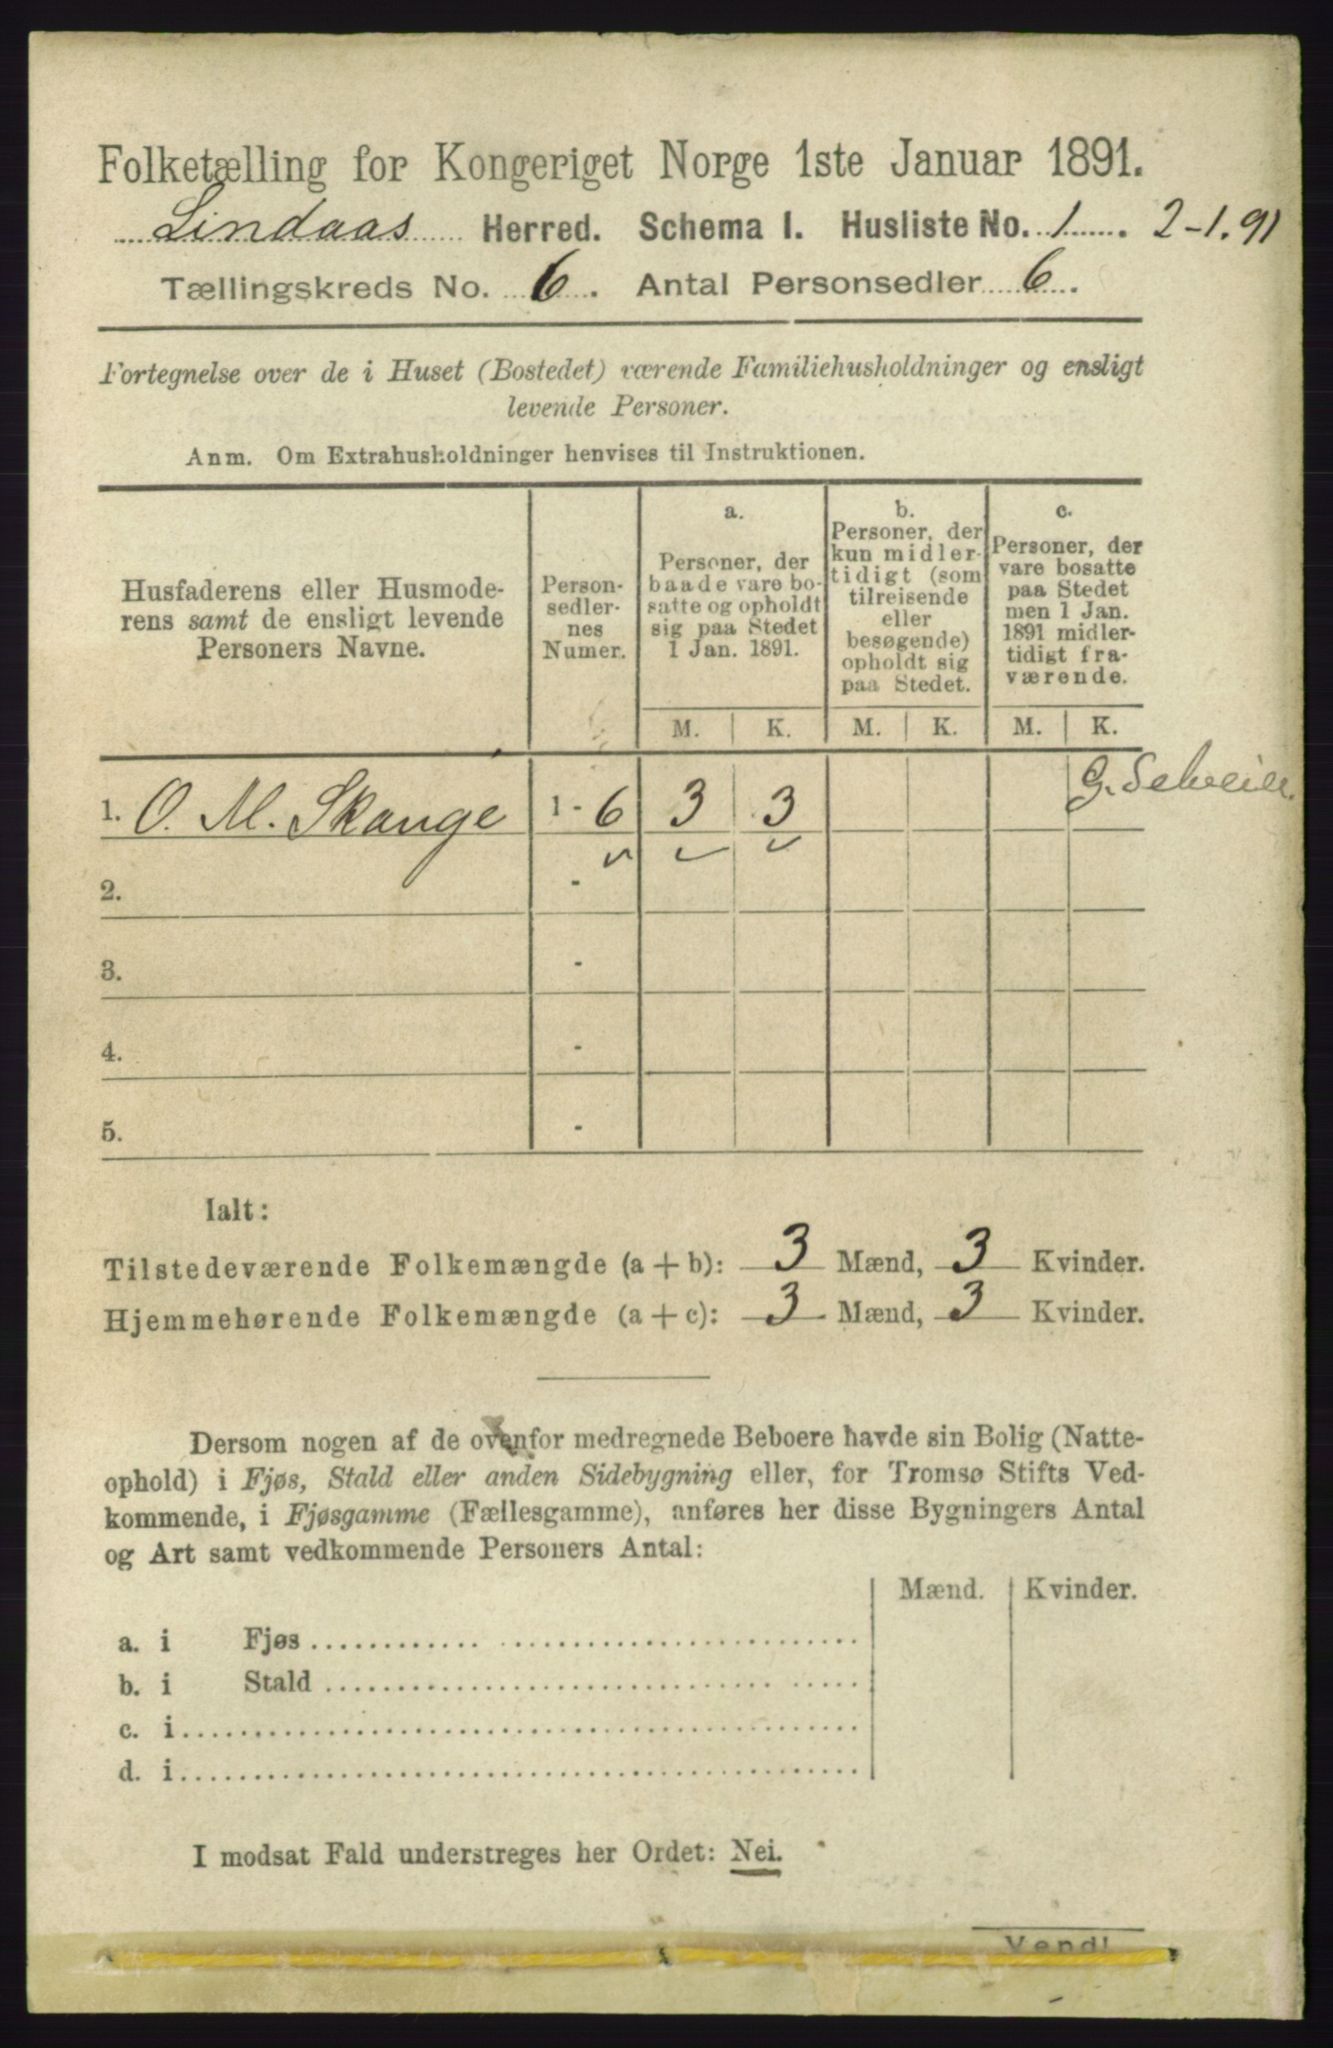 Folketælling for Kongeriget Norge 1ste Januar 1891.
Lindaas Herred. Schema I. Husliste No. 1. 2-1.91
Tællingskreds No. 6. Antal Personsedler 6.
Fortegnelse over de i Huset (Bostedet) værende Familiehusholdninger og ensligt
levende Personer.
Anm. Om Extrahusholdninger henvises til Instruktionen.
Husfaderens eller Husmode-
rens samt de ensligt levende
Personers Navne.
Person-
sedler-
nes
Numer.
a.
Personer, der
baade vare bo-
satte og opholdt
sig paa Stedet
1 Jan. 1891.
b.
Personer, der
kun midler-
tidigt (som
tilreisende
eller
besøgende)
opholdt sig
paa Stedet.
c.
Personer, der
vare bosatte
paa Stedet
men 1 Jan.
1891 midler-
tidigt fra-
værende.
M. K. M. K. M. K.
1. O. M. Skauge 1 - 6 3 3 G.
2. -
3. -
4. -
5. -
Ialt:
Tilstedeværende Folkemængde (a + b): 3 Mænd, 3 Kvinder.
Hjemmehørende Folkemængde (a + c): 3 Mænd, 3 Kvinder.
Dersom nogen af de ovenfor medregnede Beboere havde sin Bolig (Natte-
ophold) i Fjøs, Stald eller anden Sidebygning eller, for Tromsø Stifts Ved-
kommende, i Fjøsgamme (Fællesgamme), anføres her disse Bygningers Antal
og Art samt vedkommende Personers Antal:
Mænd. Kvinder.
a. i Fjøs
b. i Stald
c. i
d. i
I modsat Fald understreges her Ordet: Nei.
Vend!